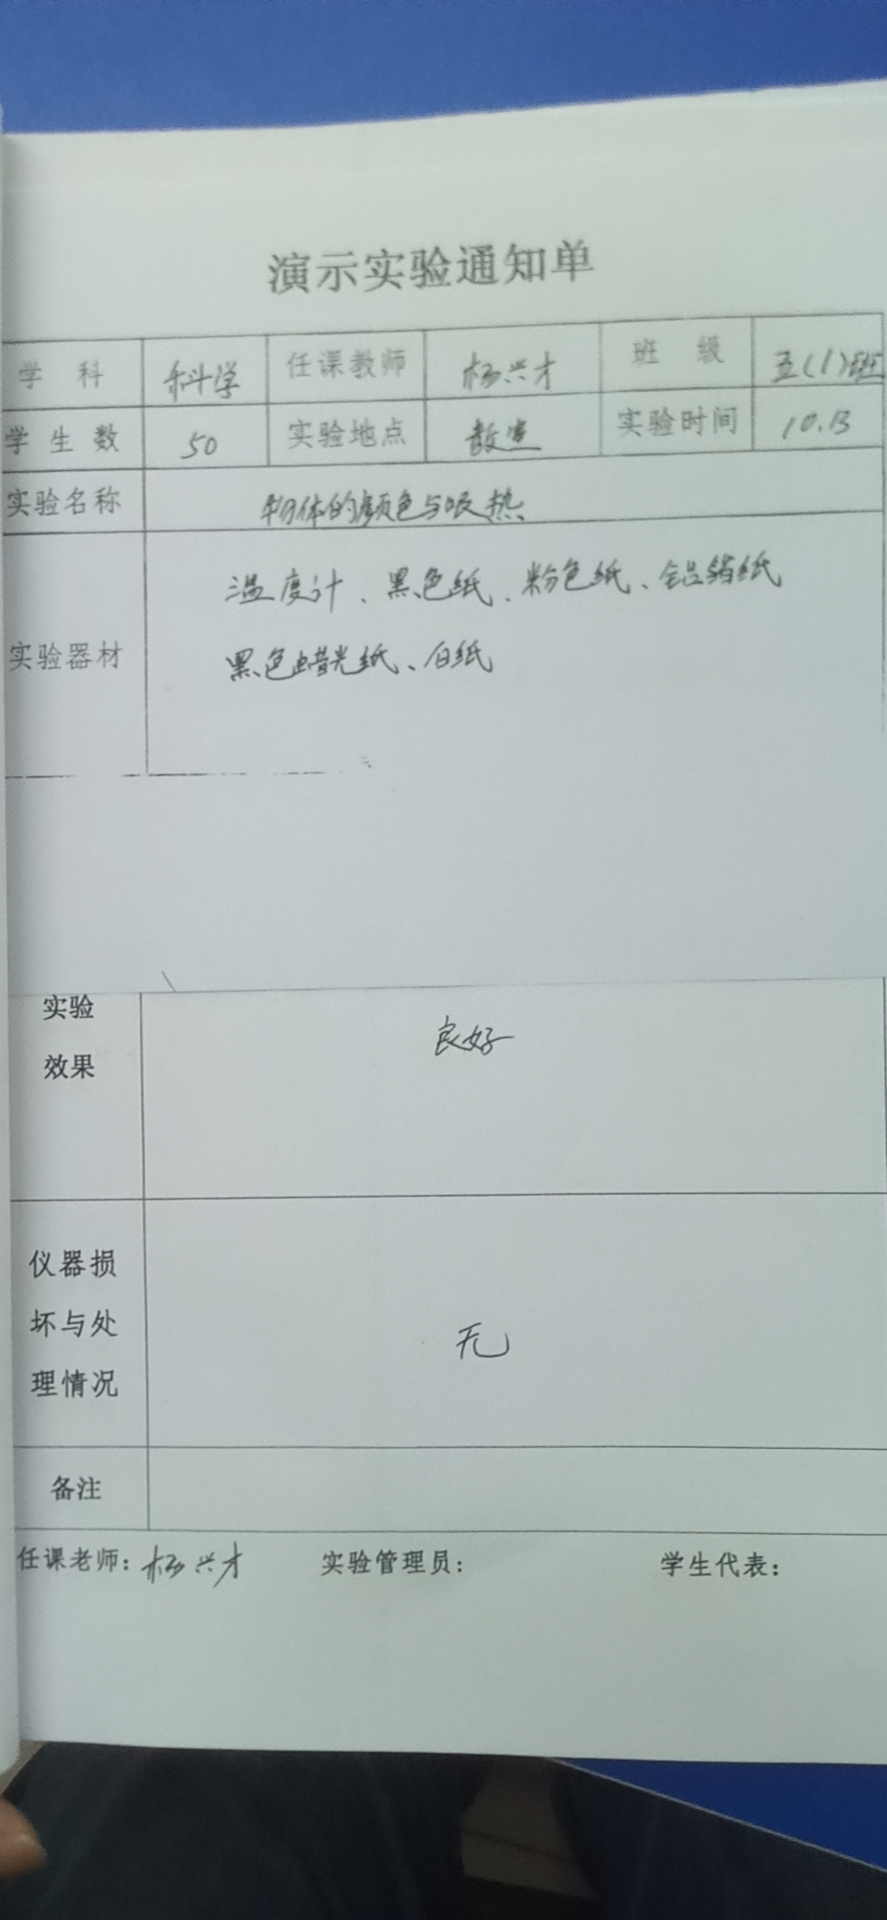 演示实验通知单
学 科 科学 任课教师 杨兴才 班 级 五(1)班
学生数 50 实验地点 教室 实验时间 10.13
实验名称 物体的颜色与吸热
温度计、黑色纸、粉色纸、铝箔纸
实验器材
黑色蜡光纸、白纸
实验
效果
良好
仪器损
坏与处
理情况
无
备注
任课老师:杨兴才 实验管理员: 学生代表: